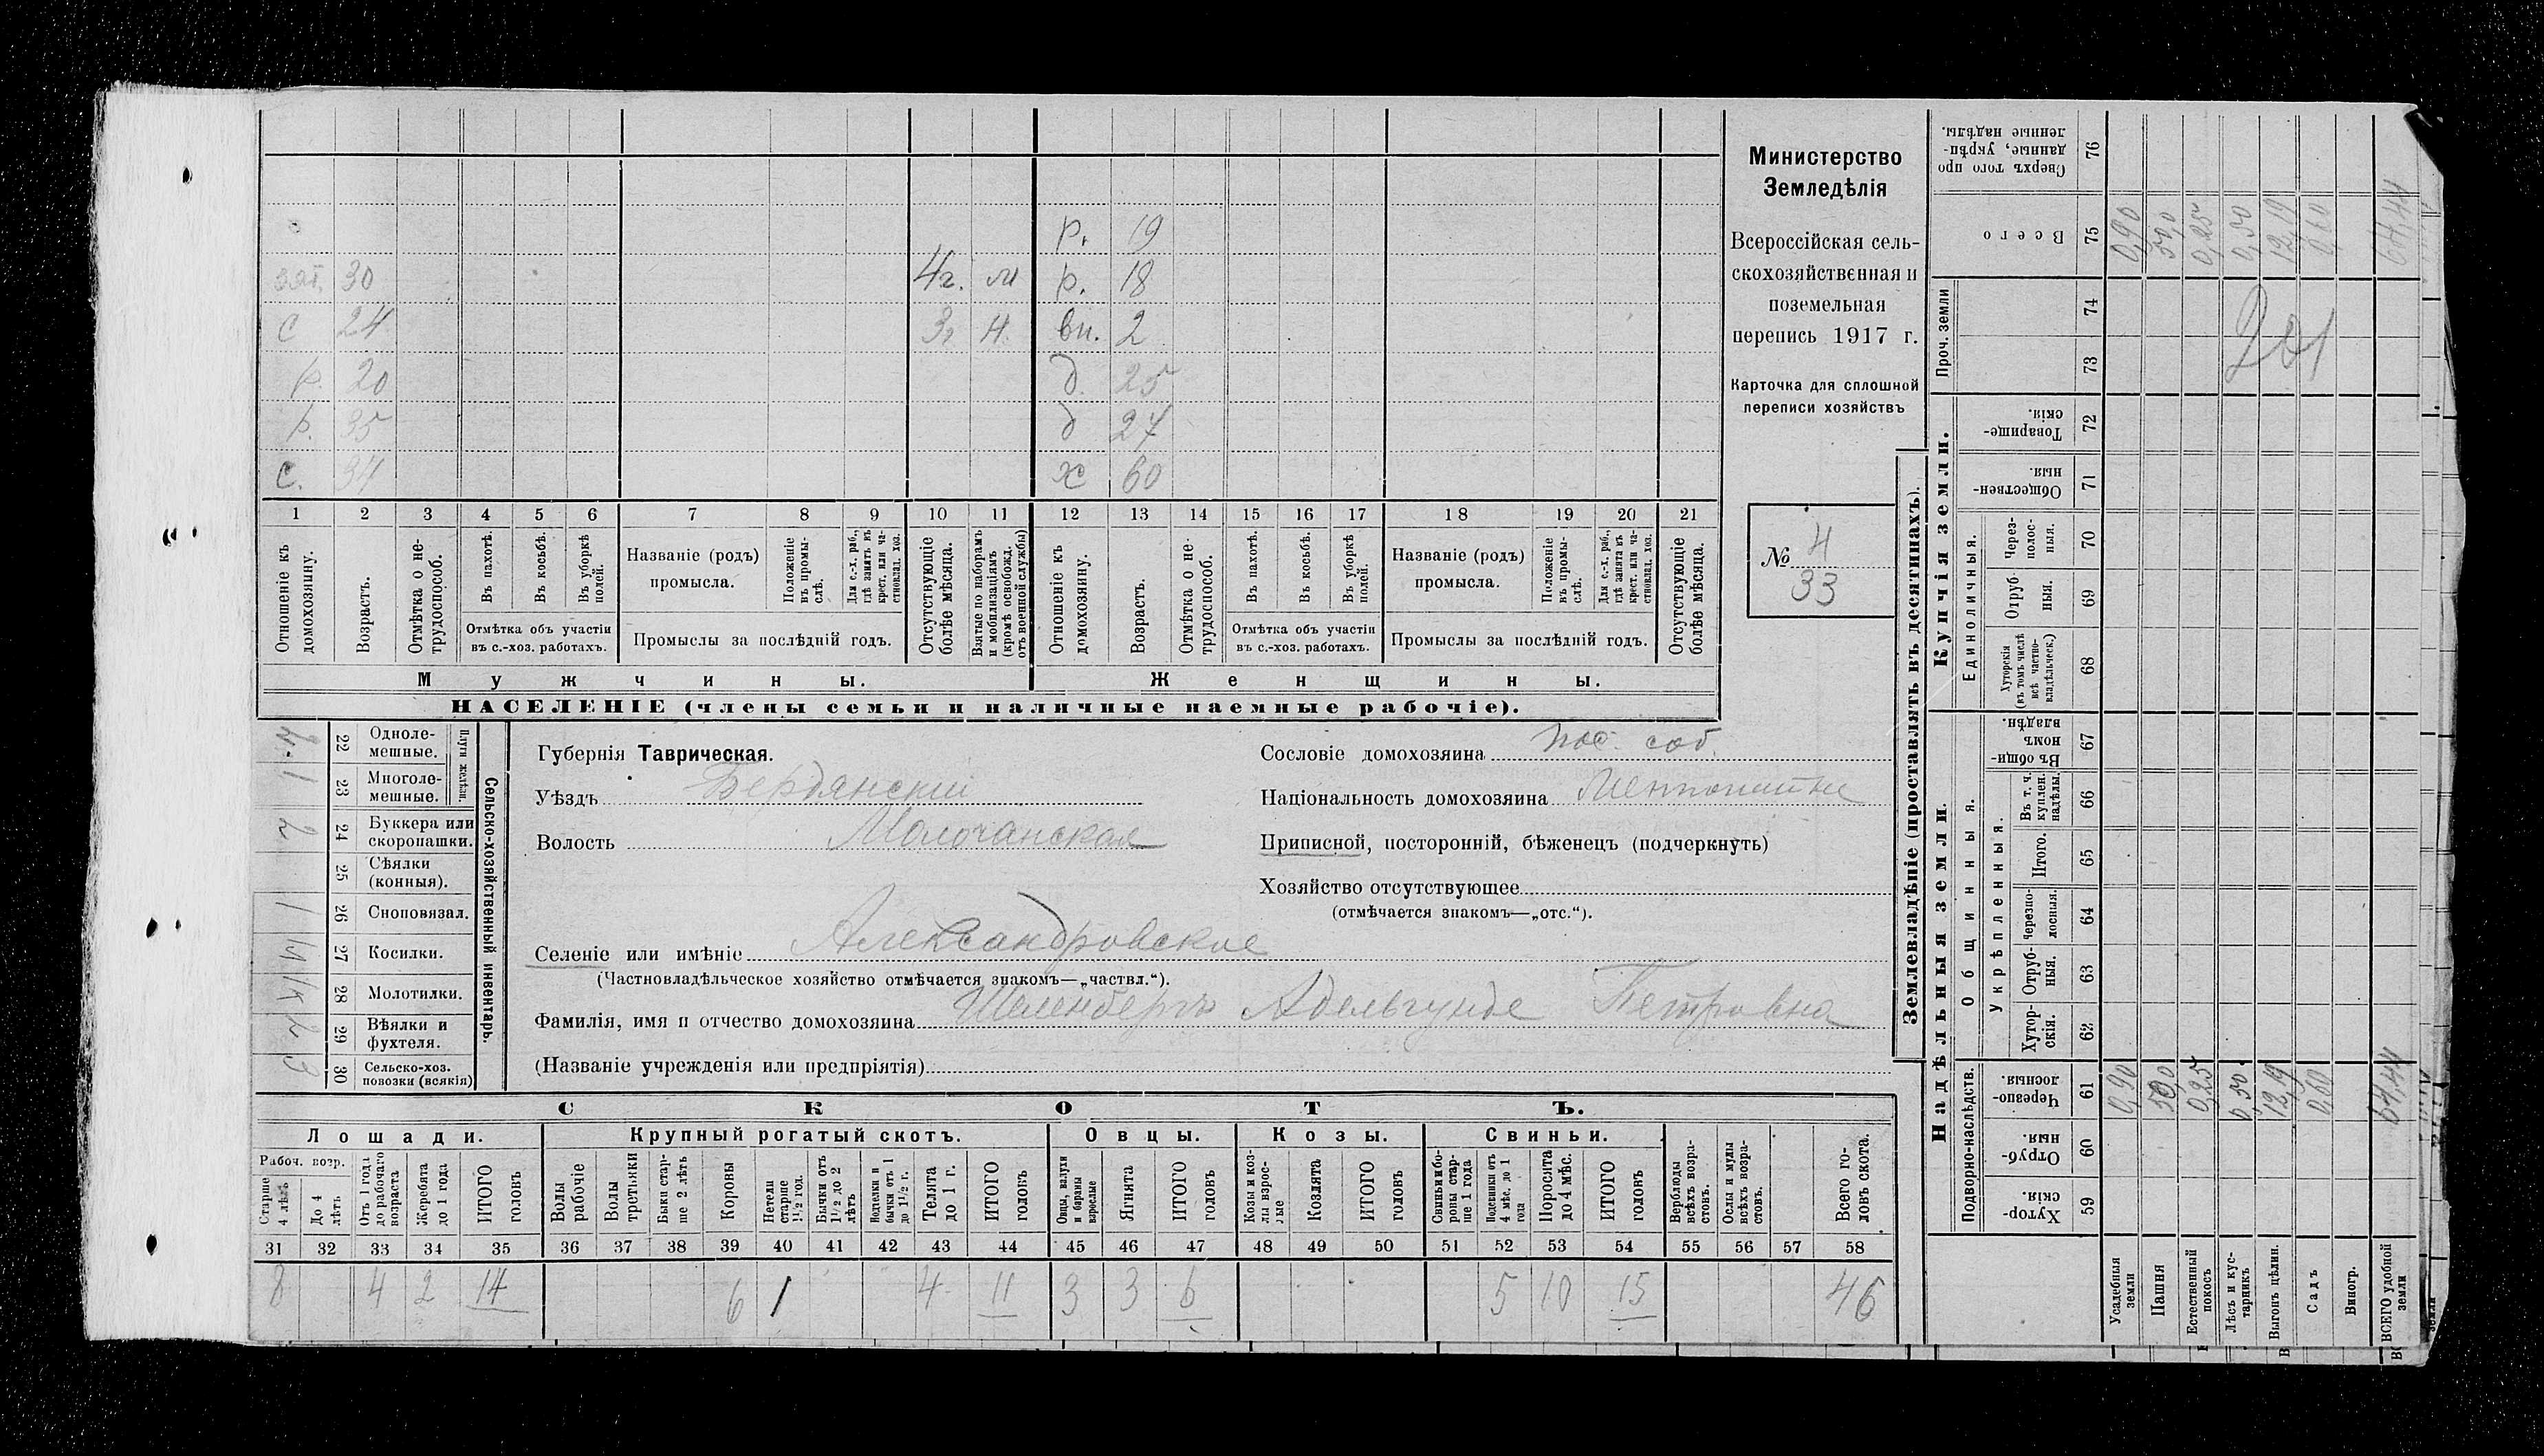 Министерство
Земледѣлія
Всероссійская сель-
скохозяйственная и
поземельная
перепись 1917 г.
Карточка для сплошной
переписи хозяйствъ
№ 4
33
р. 19
зят. 30 4г. м р. 18
с 24 3г н. вн. 2
р. 20 д. 25
р. 35 д 27
с. 37 х 60
1 2 3 4 5 6 7 8 9 10 11 12 13 14 15 16 17 18 19 20 21
Отношеніе къ домохозяину.
Возрастъ.
Отмѣтка о не-трудоспособ.
Въ пахотѣ.
Въ косьбѣ.
Въ уборкѣ полей.
Отмѣтка объ участіи
въ с.-хоз. работахъ.
Названіе (родъ)
промысла.
Положеніе въ промы-слѣ.
Для с.-х. раб., гдѣ занятъ въ крест. или ча-стновлад. хоз.
Промыслы за послѣдній годъ.
Отсутствующіе болѣе мѣсяца.
Взятые по наборамъ и мобилизаціямъ (кромѣ освобожд. отъ военной службы)
Отношеніе къ домохозяину.
Возрастъ.
Отмѣтка о не-трудоспособ.
Въ пахотѣ.
Въ косьбѣ.
Въ уборкѣ полей.
Отмѣтка объ участіи
въ с.-хоз. работахъ.
Названіе (родъ)
промысла.
Положеніе въ промы-слѣ.
Для с.-х. раб., гдѣ занята въ крест. или ча-стновлад. хоз.
Промыслы за послѣдній годъ.
Отсутствующіе болѣе мѣсяца.
Мужчины. Женщины.
НАСЕЛЕНІЕ (члены семьи и наличные наемные рабочіе).
Сельско-хозяйственный инвентарь.
Плуги желѣзн.
22 Одноле-мешные.
1 23 Многоле-мешные.
2 24 Буккера или скоропашки.
25 Сѣялки (конныя).
1 26 Сноповязал.
27 Косилки.
28 Молотилки.
2 29 Вѣялки и фухтеля.
3 30 Сельско-хоз. повозки (всякія)
Губернія Таврическая.
Уѣздъ Бердянскій
Волость Молочанская
Селеніе или имѣніе Александровское
(Частновладѣльческое хозяйство отмѣчается знакомъ—„частвл.“).
Фамилія, имя и отчество домохозяина Шеленбергъ Адельгунде Петровна
(Названіе учрежденія или предпріятія)
Сословіе домохозяина пос. соб.
Національность домохозяина
Приписной, посторонній, бѣженецъ (подчеркнуть)
Хозяйство отсутствующее
(отмѣчается знакомъ—„отс.“).
СКОТЪ.
Лошади. Крупный рогатый скотъ. Овцы. Козы. Свиньи.
Рабоч. возр.
Старше 4 лѣтъ
До 4 лѣтъ
Отъ 1 года до рабочаго возраста
Жеребята до 1 года
ИТОГО головъ
Волы рабочіе
Волы третьяки
Быки стар-ше 2 лѣтъ
Коровы
Нетели старше 1½ год.
Бычки отъ 1½ до 2 лѣтъ
Подтелки и бычки отъ 1 до 1½ г.
Телята до 1 г.
ИТОГО головъ
Овцы, валухи и бараны взрослые
Ягнята
ИТОГО головъ
Козы и коз-лы взрос-лые
Козлята
ИТОГО головъ
Свиньи и бо-ровы стар-ше 1 года
Подсвинки отъ 4 мѣс. до 1 года
Поросята до 4 мѣс.
ИТОГО головъ
Верблюды всѣхъ возра-стовъ.
Ослы и мулы всѣхъ возра-стовъ.
Всего го-ловъ скота.
31 32 33 34 35 36 37 38 39 40 41 42 43 44 45 46 47 48 49 50 51 52 53 54 55 56 57 58
8 4 2 14 6 1 4 11 3 3 6 5 10 15 46
Землевладѣніе (проставлять въ десятинахъ).
Купчія земли.
Надѣльныя земли.
Сверхъ того про-данные, укрѣп-ленные надѣлы. 76
Всего 75 0,90 50,0 0,25 0,50 12,19 0,60 64,44
Проч. земли 74 73
201
Товарище-скія. 72
Обществен-ныя. 71
Единоличныя.
Черезполос-ныя. 70
Отруб-ныя. 69
Хуторскія (въ томъ числѣ всѣ частно-владѣльческ.) 68
Общинныя.
Въ общин-номъ владѣн. 67
Укрѣпленныя.
Въ т. ч. куплен. надѣлы. 66
Итого. 65
Черезпо-лосныя. 64
Отруб-ныя. 63
Хутор-скія. 62
Подворно-наслѣдств.
Черезпо-лосныя. 61 0,90 50,0 0,25 0,50 12,19 0,60 64,44
Отруб-ныя. 60
Хутор-скія. 59
Усадебныя земли
Пашня
Естественный покосъ
Лѣсъ и кус-тарникъ
Выгонъ цѣлин.
Садъ
Виногр.
ВСЕГО удобной земли